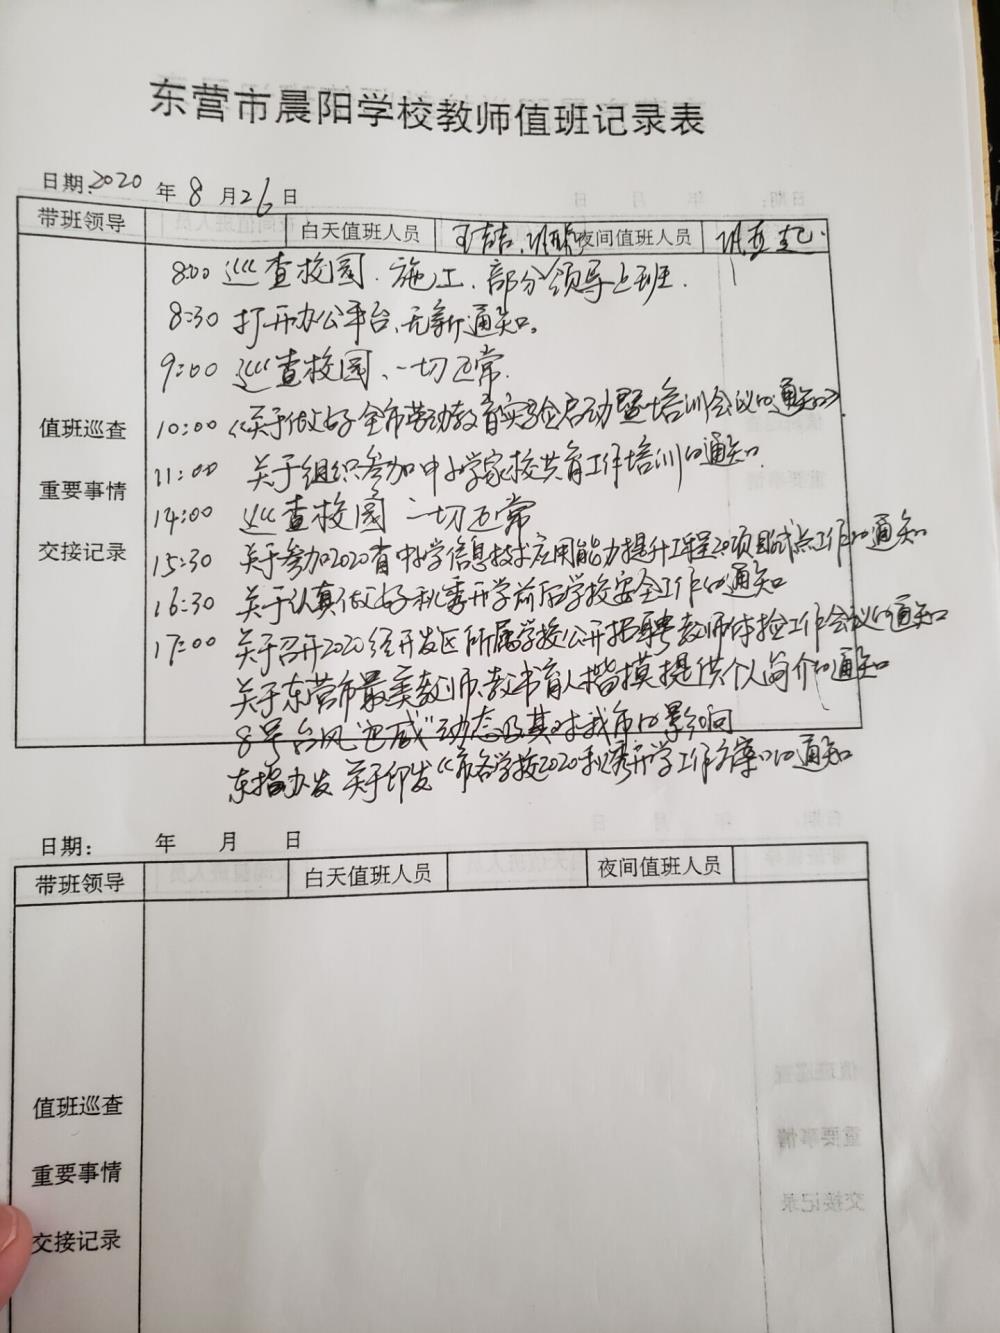 东营市晨阳学校教师值班记录表
日期:2020 年 8 月 26 日
带班领导 白天值班人员 夜间值班人员
8:00 巡查校园、施工、部分领导上班.
8:30 打开办公平台,无新通知。
9:00 巡查校园、一切正常.
值班巡查 10:00 《关于做好全市劳动教育实验启动暨培训会议的通知》.
11:00 关于组织参加中小学家校共育工作培训的通知.
重要事情
14:00 巡查校园 一切正常
交接记录 15:30 关于参加2020省中小学信息技术应用能力提升工程2.0项目试点工作的通知
16:30 关于认真做好秋季开学前后学校安全工作的通知
17:00 关于召开2020经开发区所属学校公开招聘教师体检工作会议的通知
关于东营市最美教师、教书育人楷摸提供个人简介的通知
8号台风"巴威"动态及其对我市的影响
东指办发 关于印发《市各学校2020秋季开学工作方案》的通知
日期: 年 月 日
带班领导 白天值班人员 夜间值班人员
值班巡查
重要事情
交接记录